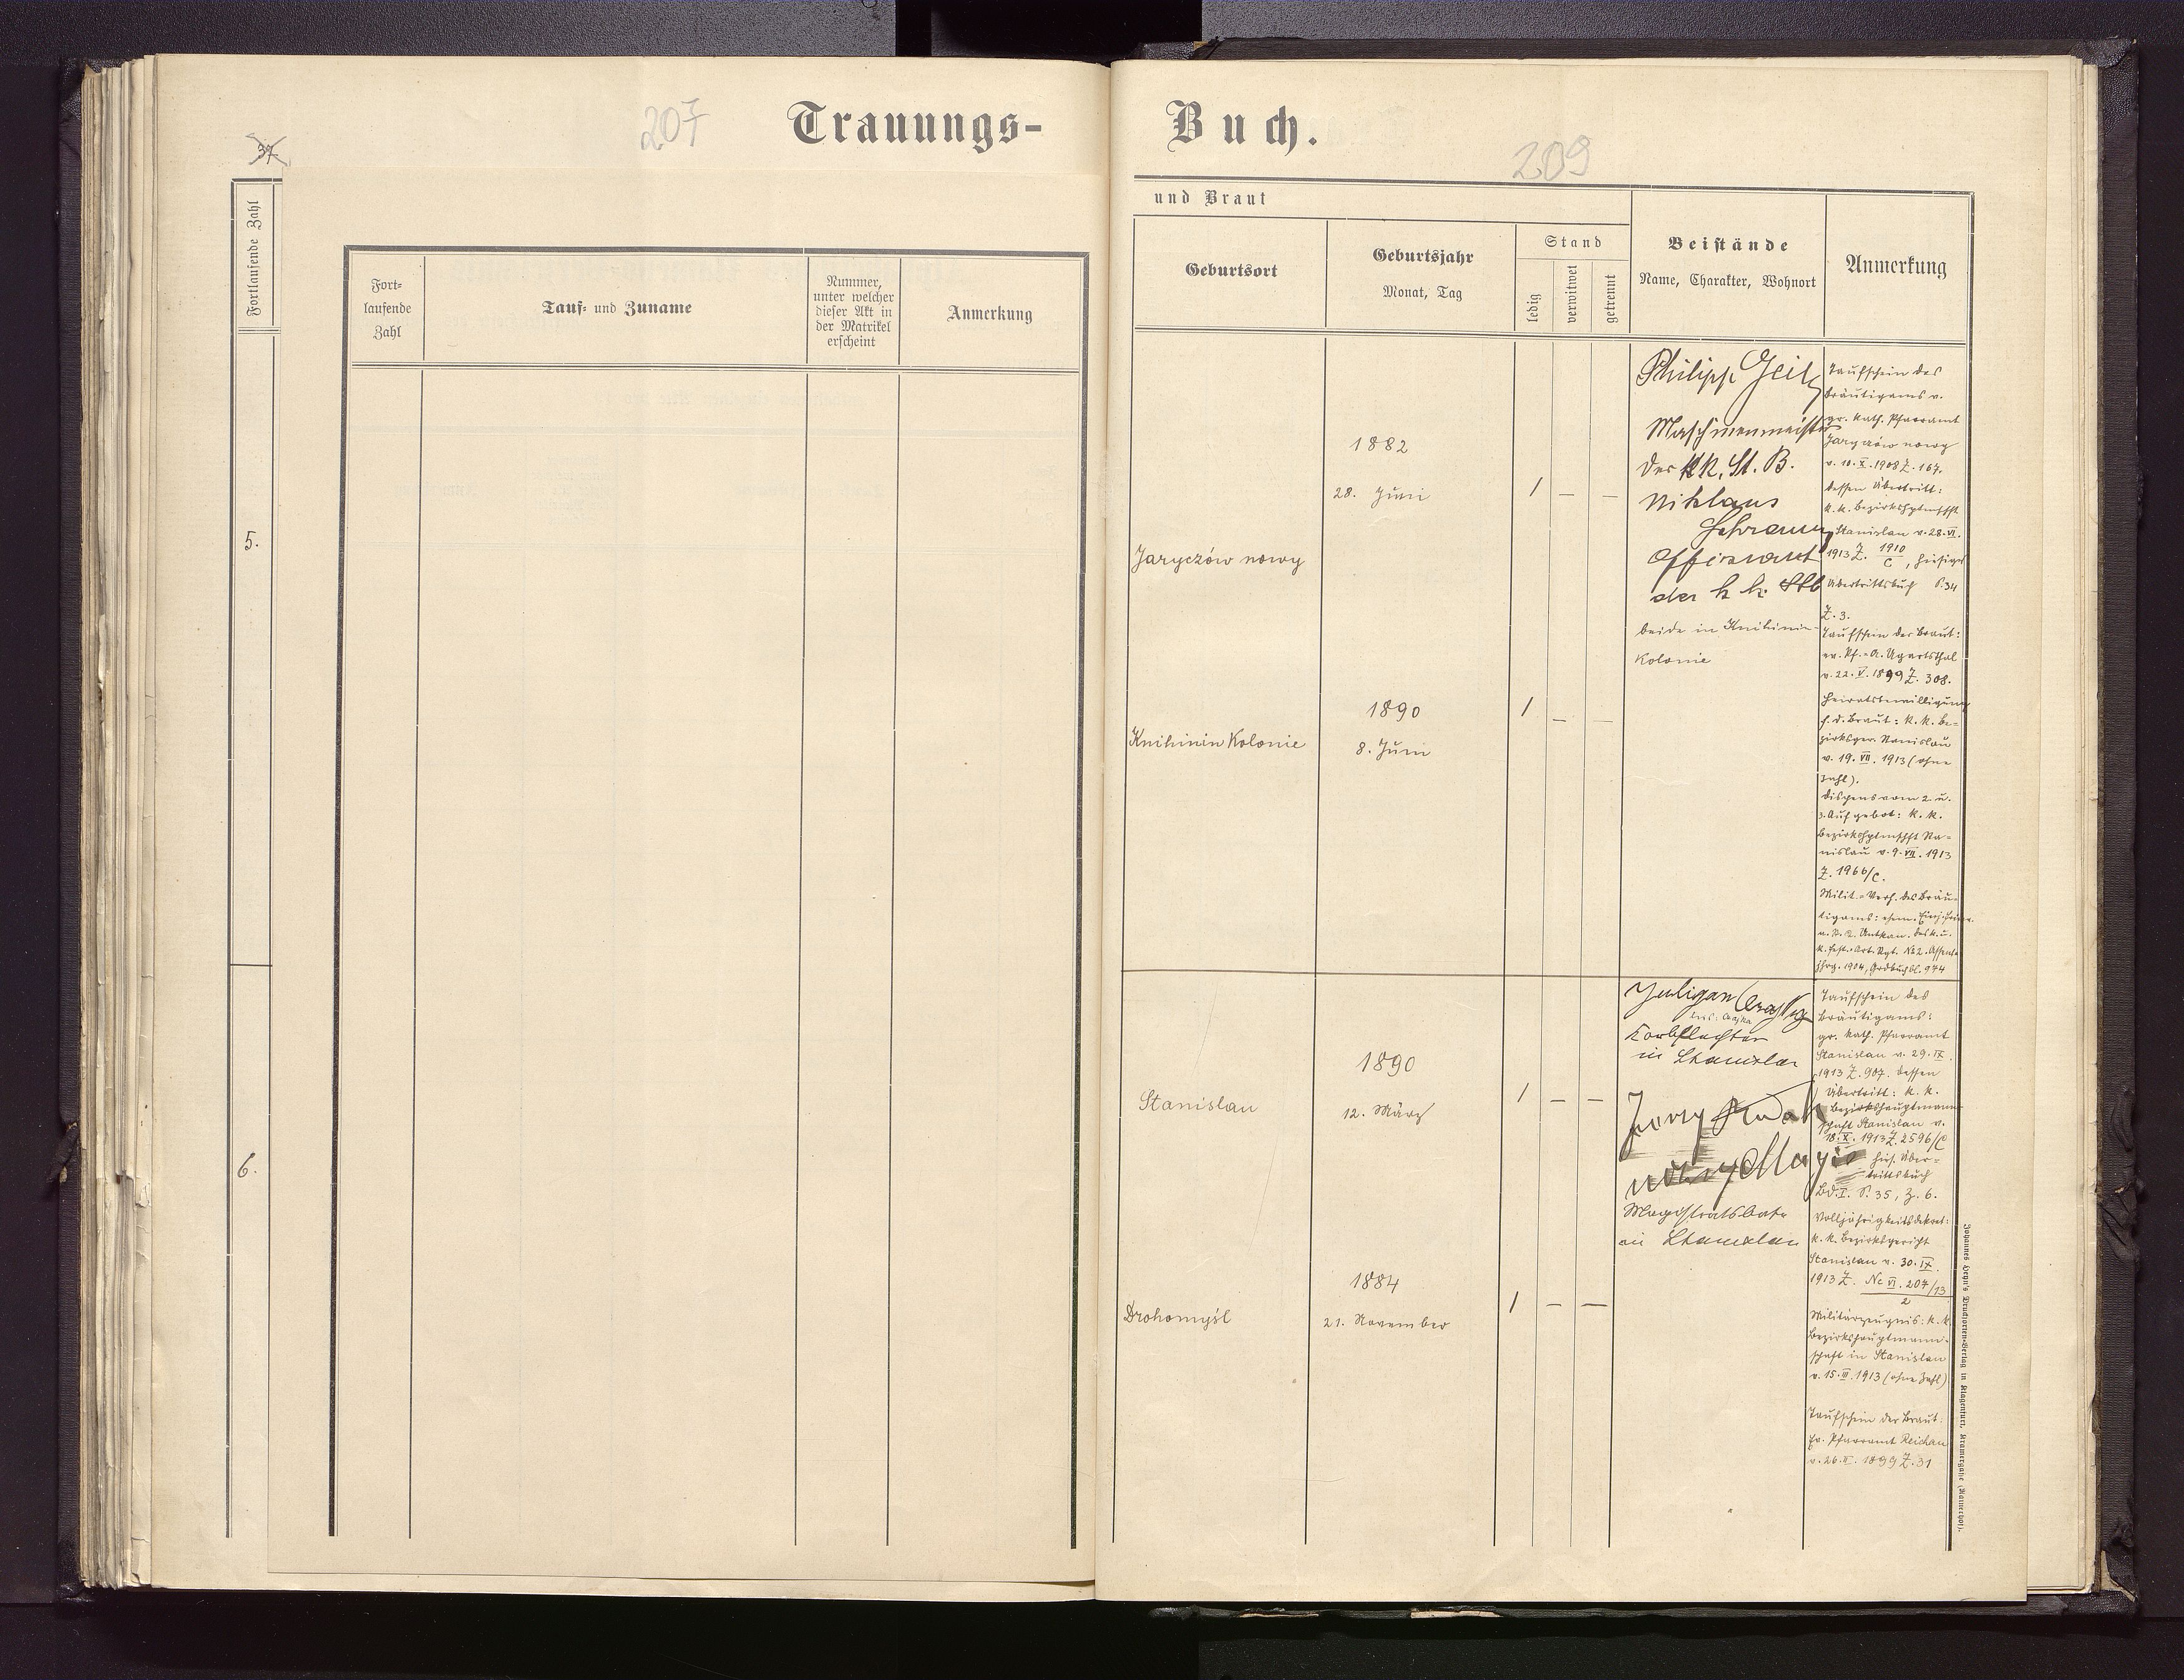 207
Trauungs-
37
Fortlaufende Zahl
Fort-
laufende
Zahl
Tauf- und Zuname
Nummer,
unter welcher
dieser Akt in
der Matrikel
erscheint
Anmerkung
5.
6.
Buch.
209
und Braut
Geburtsort
Geburtsjahr
Monat, Tag
Stand
ledig
verwitwet
getrennt
Beistände
Name, Charakter, Wohnort
Anmerkung
Jaryczów nowy
1882
28. Juni
/ – –
Knihinin Kolonie
1890
8. Juni
/ – –
Philipp Geib
Maschinenmeister
der kk. St. B.
Niklaus
Schramm
Offiziant
der k. k. Stb
beide in Knihinin-
Kolonie
Taufschein des
Bräutigams v.
gr. kath. Pfarramt
Jaryczów nowy
v. 10. X. 1908 Z. 167.
Dessen Übertritt:
k. k. Bezirkshptmschft
Stanislau v. 28. VI.
1913 Z. 1910/C, hiesiges
Übertrittsbuch S. 34
Z. 3.
Taufschein der Braut:
ev. Pf.-A. Ugartsthal
v. 22. V. 1899 Z. 308.
Heiratsbewilligung
f. d. Braut: k. k. Be-
zirksger. Stanislau
v. 19. VII. 1913 (ohne
Zahl).
Dispens vom 2. u.
3. Aufgebot: k. k.
Bezirkshptmschft Sta-
nislau v. 9. VII. 1913
Z. 1966/C.
Milit.-Verh. des Bräu-
tigams: ehem.
des k. u.
k. Fest.-Art. Rgt. No 2.
1904, Grdbuchbl. 974
Stanislau
1890
12. März
/ – –
Drohomyśl
1884
21. November
/ – –
Julian
Korbflechter
in Stanislau
Jerzy
Magistratsbeamter
in Stanislau
Taufschein des
Bräutigams:
gr. kath. Pfarramt
Stanislau v. 29. IX.
1913 Z. 907. Dessen
Übertritt: k. k.
Bezirkshauptmann-
schaft Stanislau v.
18. X. 1913 Z. 2596/C
hies. Über-
trittsbuch
Bd. I. S. 35, Z. 6.
Volljährigkeitsdekret:
k. k. Bezirksgericht
Stanislau v. 30. IX.
1913 Z. Nc VI. 207/13
2
Militärzeugnis: k. k.
Bezirkshauptmann-
schaft in Stanislau
v. 15. III. 1913 (ohne Zahl)
Taufschein der Braut:
Ev. Pfarramt Reichau
v. 26. II. 1899 Z. 31
Johannes Heyn's Drucksorten-Verlag in Klagenfurt, Kramergasse (Mannerhof).